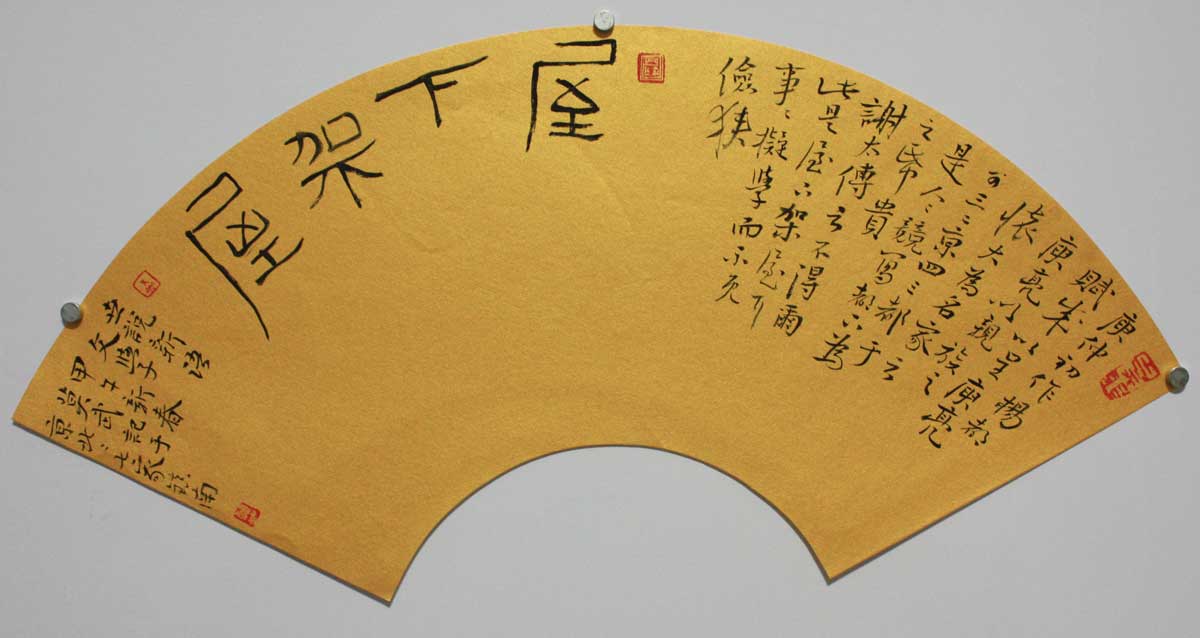 屋下架屋
庾仲初作楊都
賦成以呈庾亮
庾亮以親族之
懷大為名家云
可三二京四三都于
是人人競寫都下為
之帋貴
謝太傅云不得爾
此是屋下架屋耳
事〻擬學而不免
儉狹
世說新語
文學